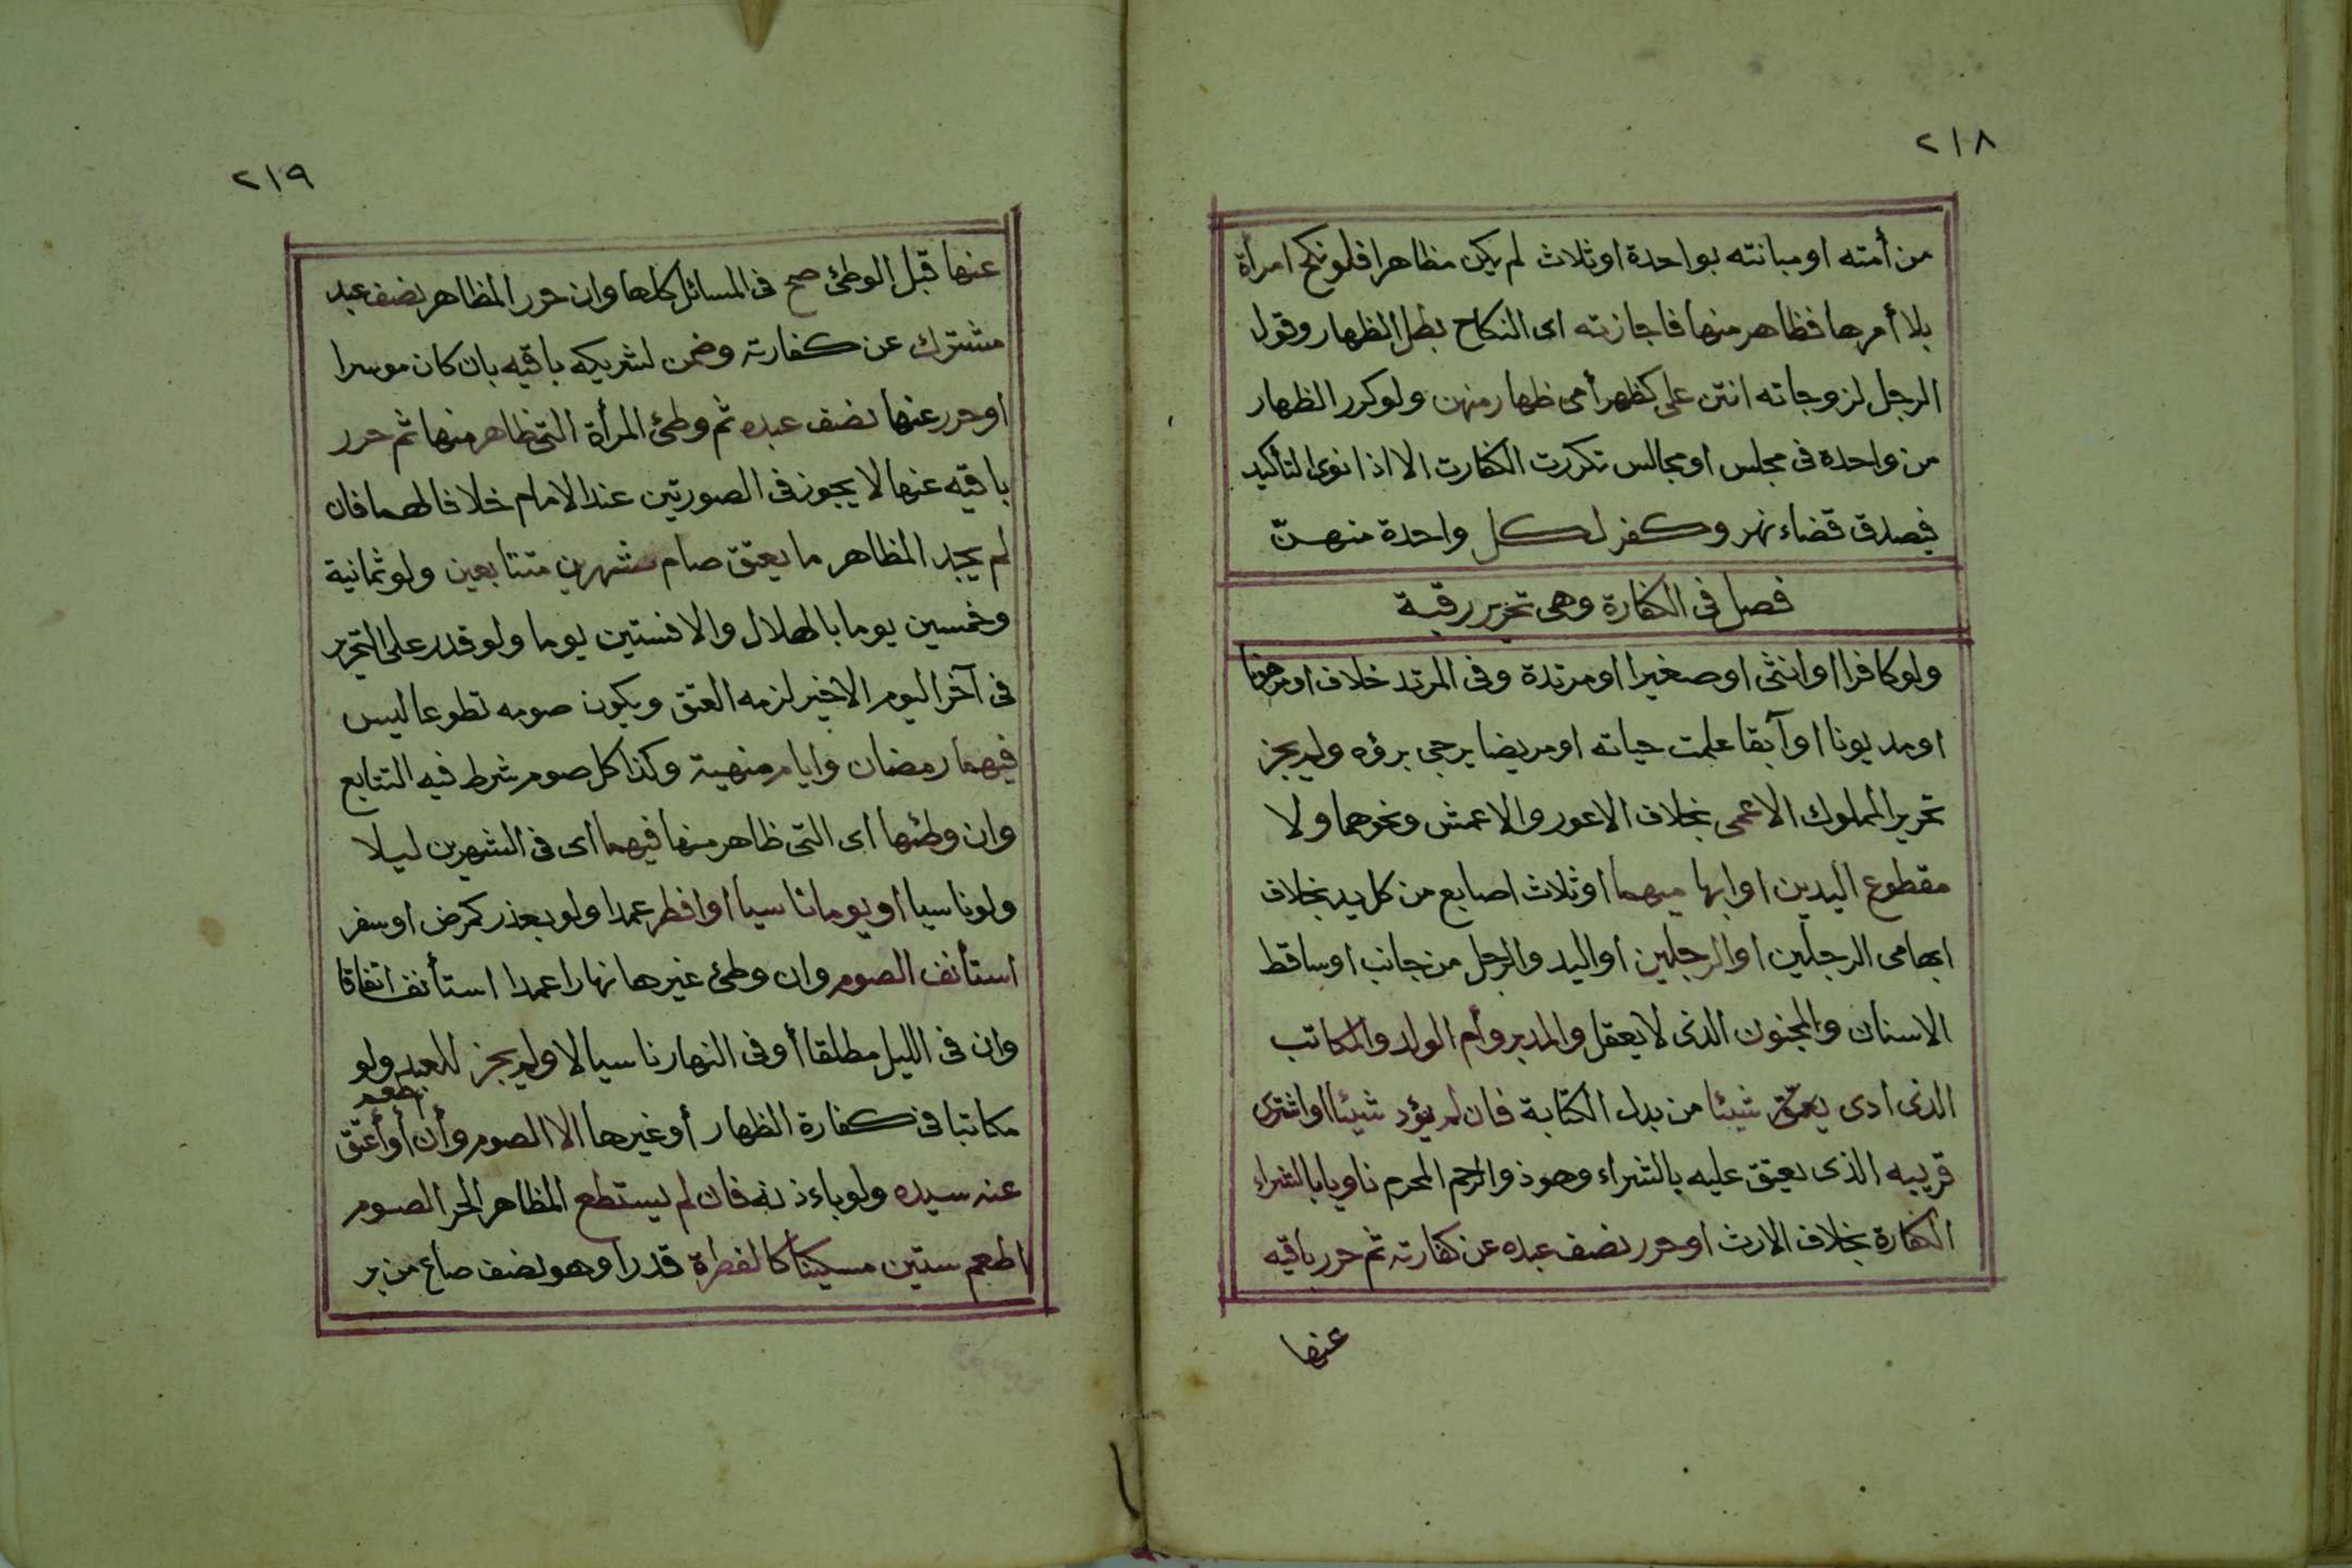 ٢١٨
من أمته او مبانته بواحدة او ثلاث لم يكن مظاهرا فلو نكح امرأة
بلا أمرها فظاهر منها فاجازته اى النكاح بطل الظهار وقول
الرجل لزوجاته انتن على كظهر أمى ظهار منهن ولو كرر الظهار
من واحدة فى مجلس او مجالس تكررت الكفارت الا اذا نوى التأكيد
فيصدق قضاء نهر وكفر لكل واحدة منهنّ
فصل فى الكفارة وهى تحرير رقبة
ولو كافرا او انثى او صغيرا او مرتدة وفى المرتد خلاف او مرهونا
او مديونا او آبقا علمت حياته او مريضا يرجى برؤه ولم يجز
تحرير المملوك الاعمى بخلاف الاعور والاعمش ونحوهما ولا
مقطوع اليدين او ابهاميهما او ثلاث اصابع من كل يد بخلاف
ابهامى الرجلين او الرجلين او اليد والرجل من جانب او ساقط
الاسنان والمجنون الذى لا يعقل والمدبر وأم الولد والمكاتب
الذى ادى شيئا من بدل الكتابة فان لم يؤد شيئا او اشترى
قريبه الذى يعتق عليه بالشراء وهو ذو الرحم المحرم ناويا بالشراء
الكفارة بخلاف الارث او حرر نصف عبده عن كفارته ثم حرر باقيه
عنها
٢١٩
عنها قبل الوطئ صح فى المسائل كلها وان حرر المظاهر نصف عبد
مشترك عن كفارته وضمن لشريكه باقيه بان كان موسرا
او حرر عنها نصف عبده ثم وطئ المرأة التى ظاهر منها ثم حرر
باقيه عنها لا يجوز فى الصورتين عند الامام خلافا لهما فان
لم يجد المظاهر ما يعتق صام شهرين متتابعين ولو ثمانية
وخمسين يوما بالهلال والا فستين يوما ولو قدر على التحرير
فى آخر اليوم الاخير لزمه العتق ويكون صومه تطوعا ليس
فيهما رمضان وايام منهية وكذا كل صوم شرط فيه التتابع
وان وطئها اى التى ظاهر منها فيهما اى فى الشهرين ليلا
ولو ناسيا او يوما ناسيا او افطر عمدا ولو بعذر كمرض او سفر
استأنف الصوم وان وطئ غيرها نهارا عمدا استأنف اتفاقا
وان فى الليل مطلقا أو فى النهار ناسيا لا ولم يجز للعبد ولو
مكاتبا فى كفارة الظهار أو غيرها الا الصوم وأن اطعم أو أعتق
عنه سيده ولو باءذنه فان لم يستطع المظاهر الحر الصوم
اطعم ستين مسكينا كالفطرة قدرا وهو نصف صاع من بر